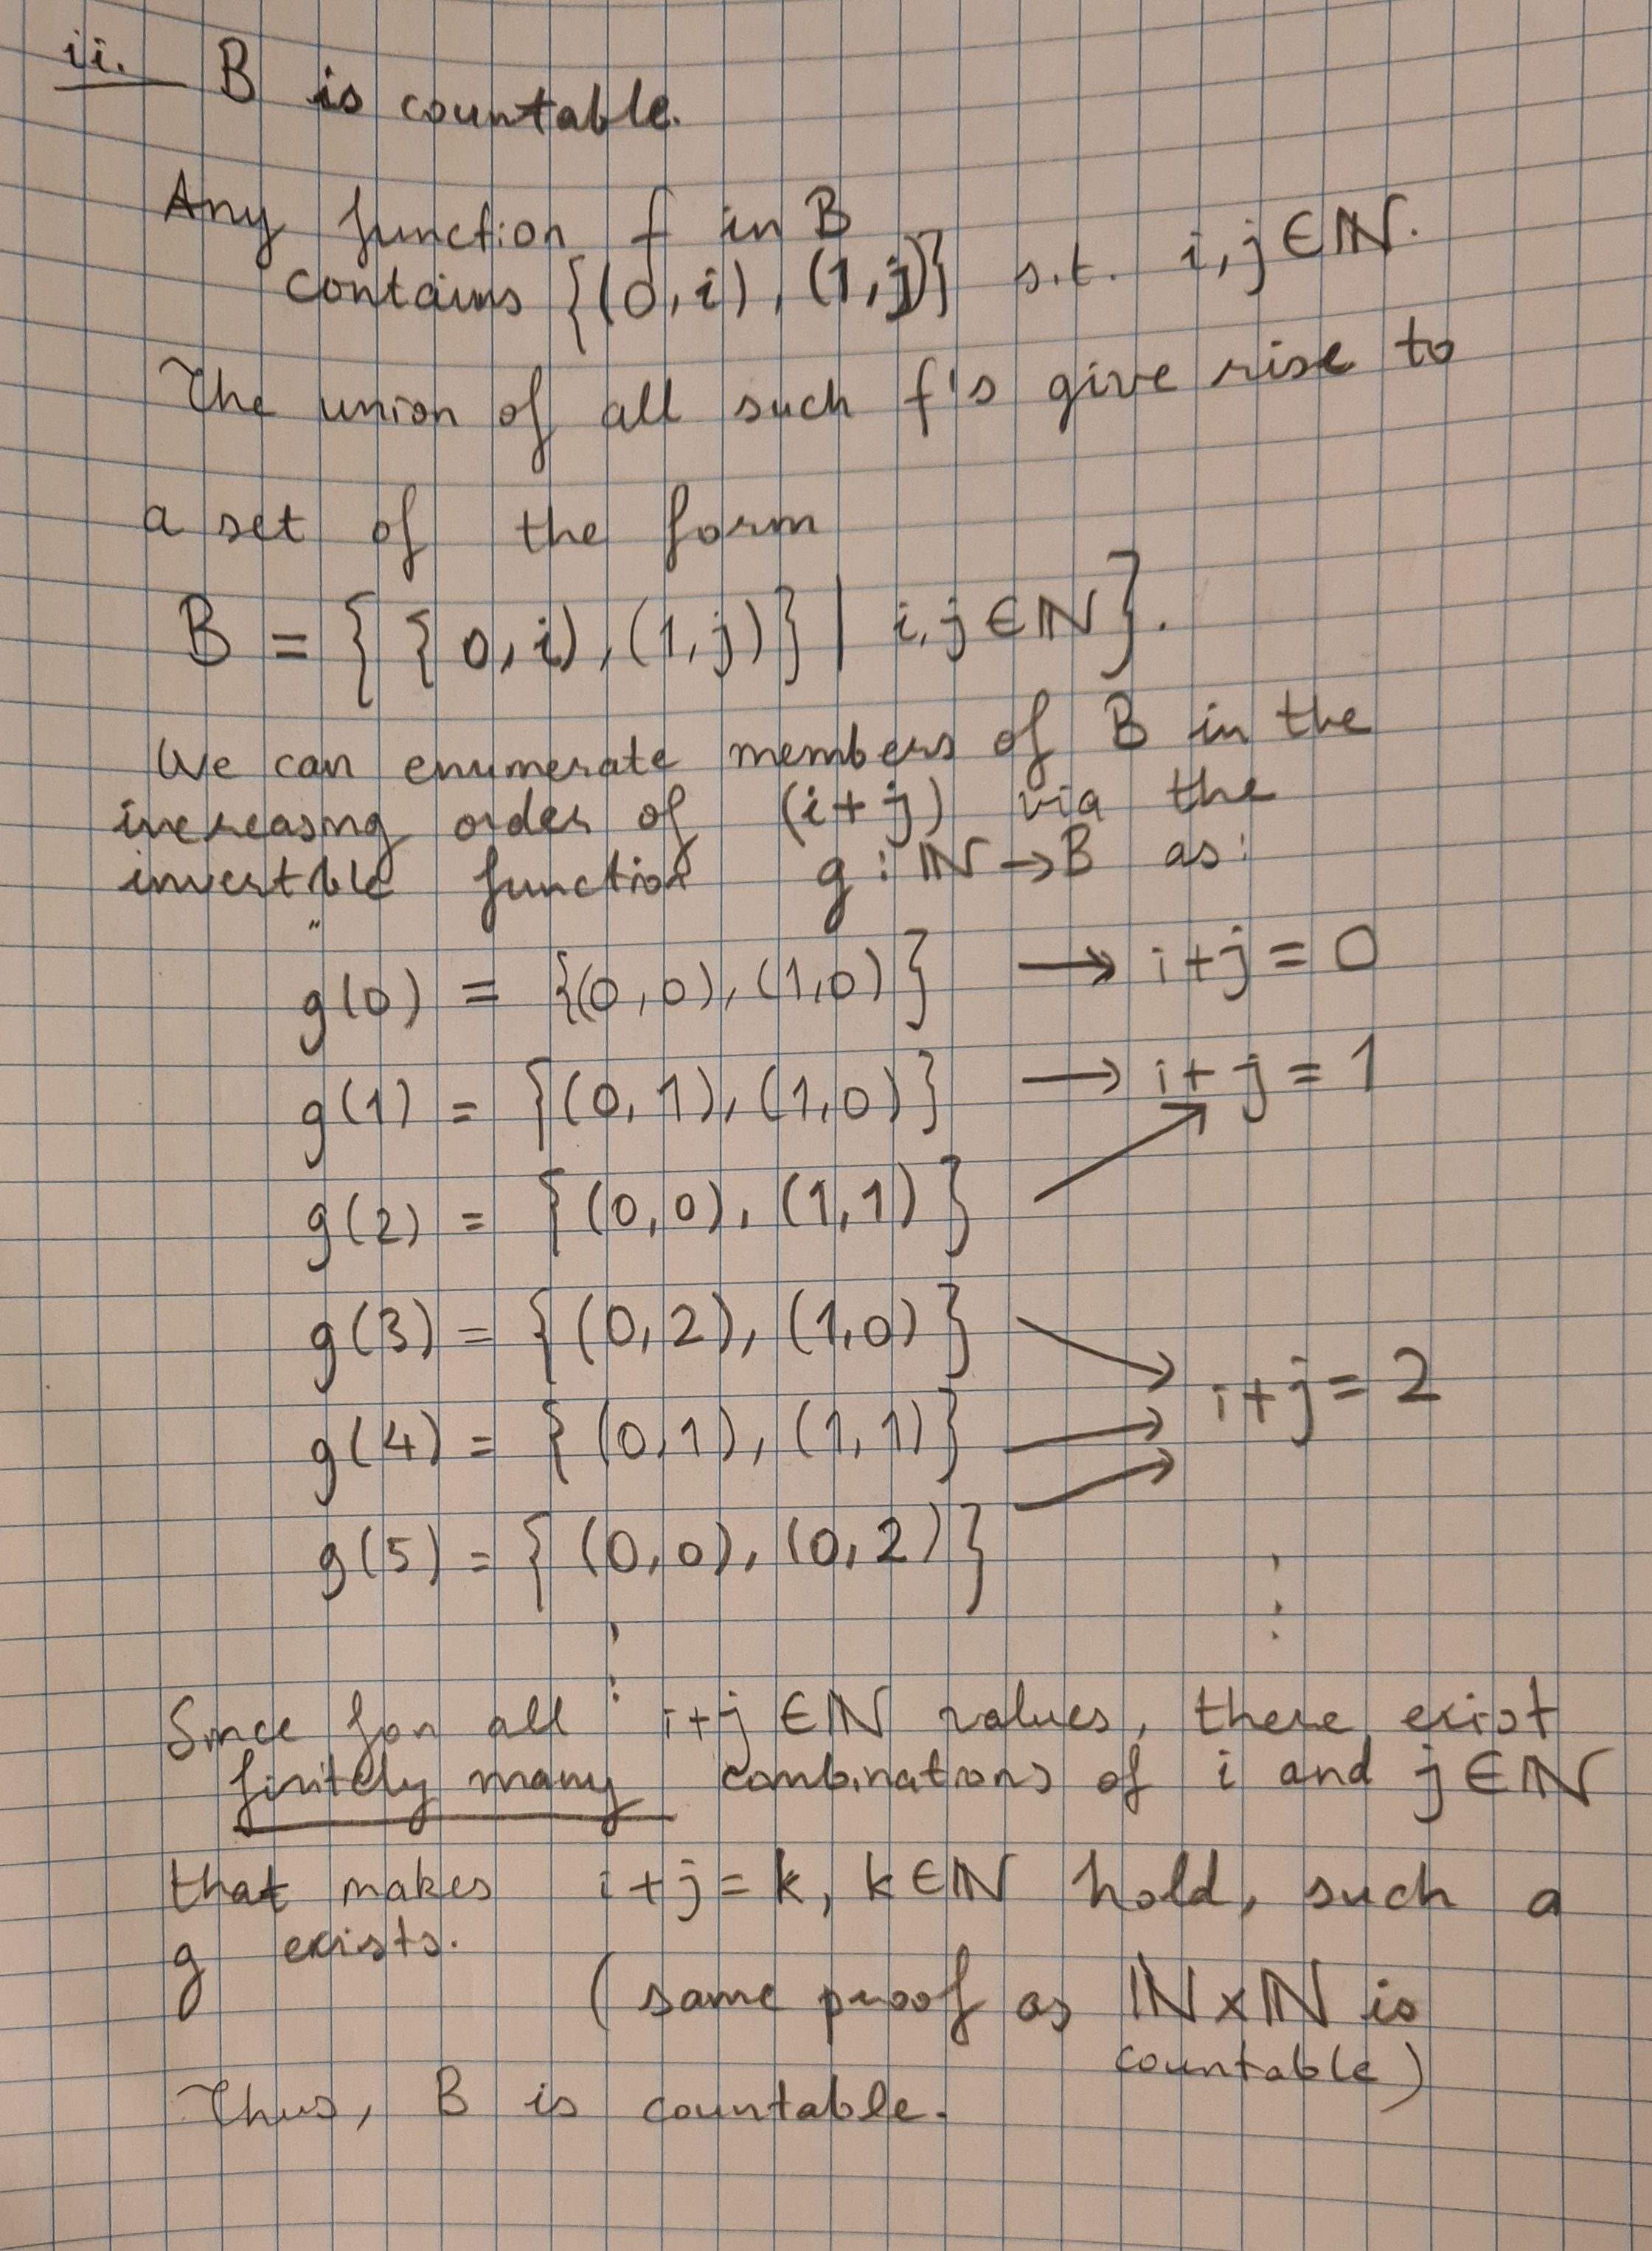 ii. B is countable.
Any function f in B
contains {(0,i), (1,j)} s.t. i,j ∈ ℕ.
The union of all such f's give rise to
a set of the form
B = { { 0,i), (1,j)} | i,j ∈ ℕ }.
We can enumerate members of B in the
increasing order of (i+j) via the
invertible function g : ℕ → B as:
g(0) = {(0,0), (1,0)} → i+j = 0
g(1) = {(0,1), (1,0)} → i+j = 1
g(2) = {(0,0), (1,1)}
g(3) = {(0,2), (1,0)}
g(4) = {(0,1), (1,1)} → i+j = 2
g(5) = {(0,0), (0,2)}
⋮ ⋮
Since for all i+j ∈ ℕ values, there exist
finitely many combinations of i and j ∈ ℕ
that makes i+j = k, k ∈ ℕ hold, such a
g exists.
(same proof as ℕ×ℕ is
countable)
Thus, B is countable.